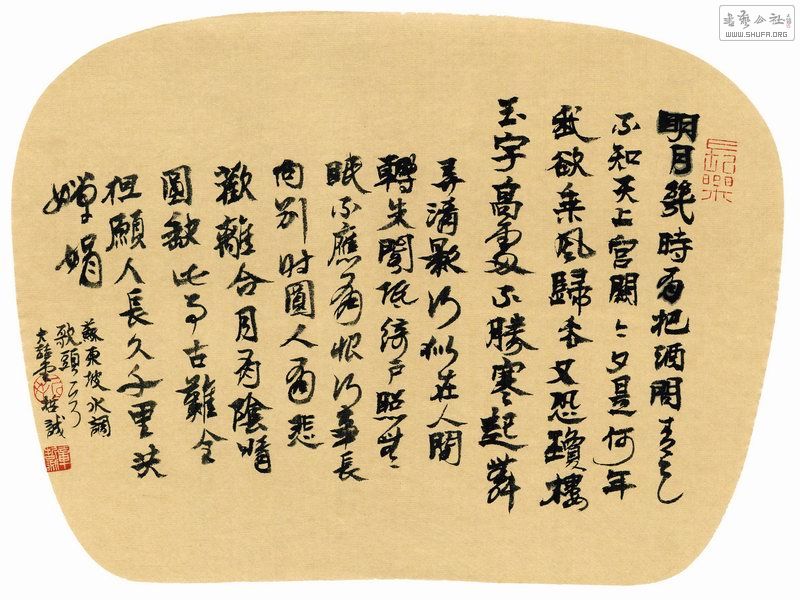 明月幾時有把酒問青天
不知天上宮闕今夕是何年
我欲乘風歸去又恐瓊樓
玉宇高處不勝寒起舞
弄清影何似在人間
轉朱閣低綺戶照無
眠不應有恨何事長
向別時圓人有悲
歡離合月有陰晴
圓缺此事古難全
但願人長久千里共
嬋娟
蘇東坡水調
歌頭
書藝公社
WWW.SHUFA.ORG